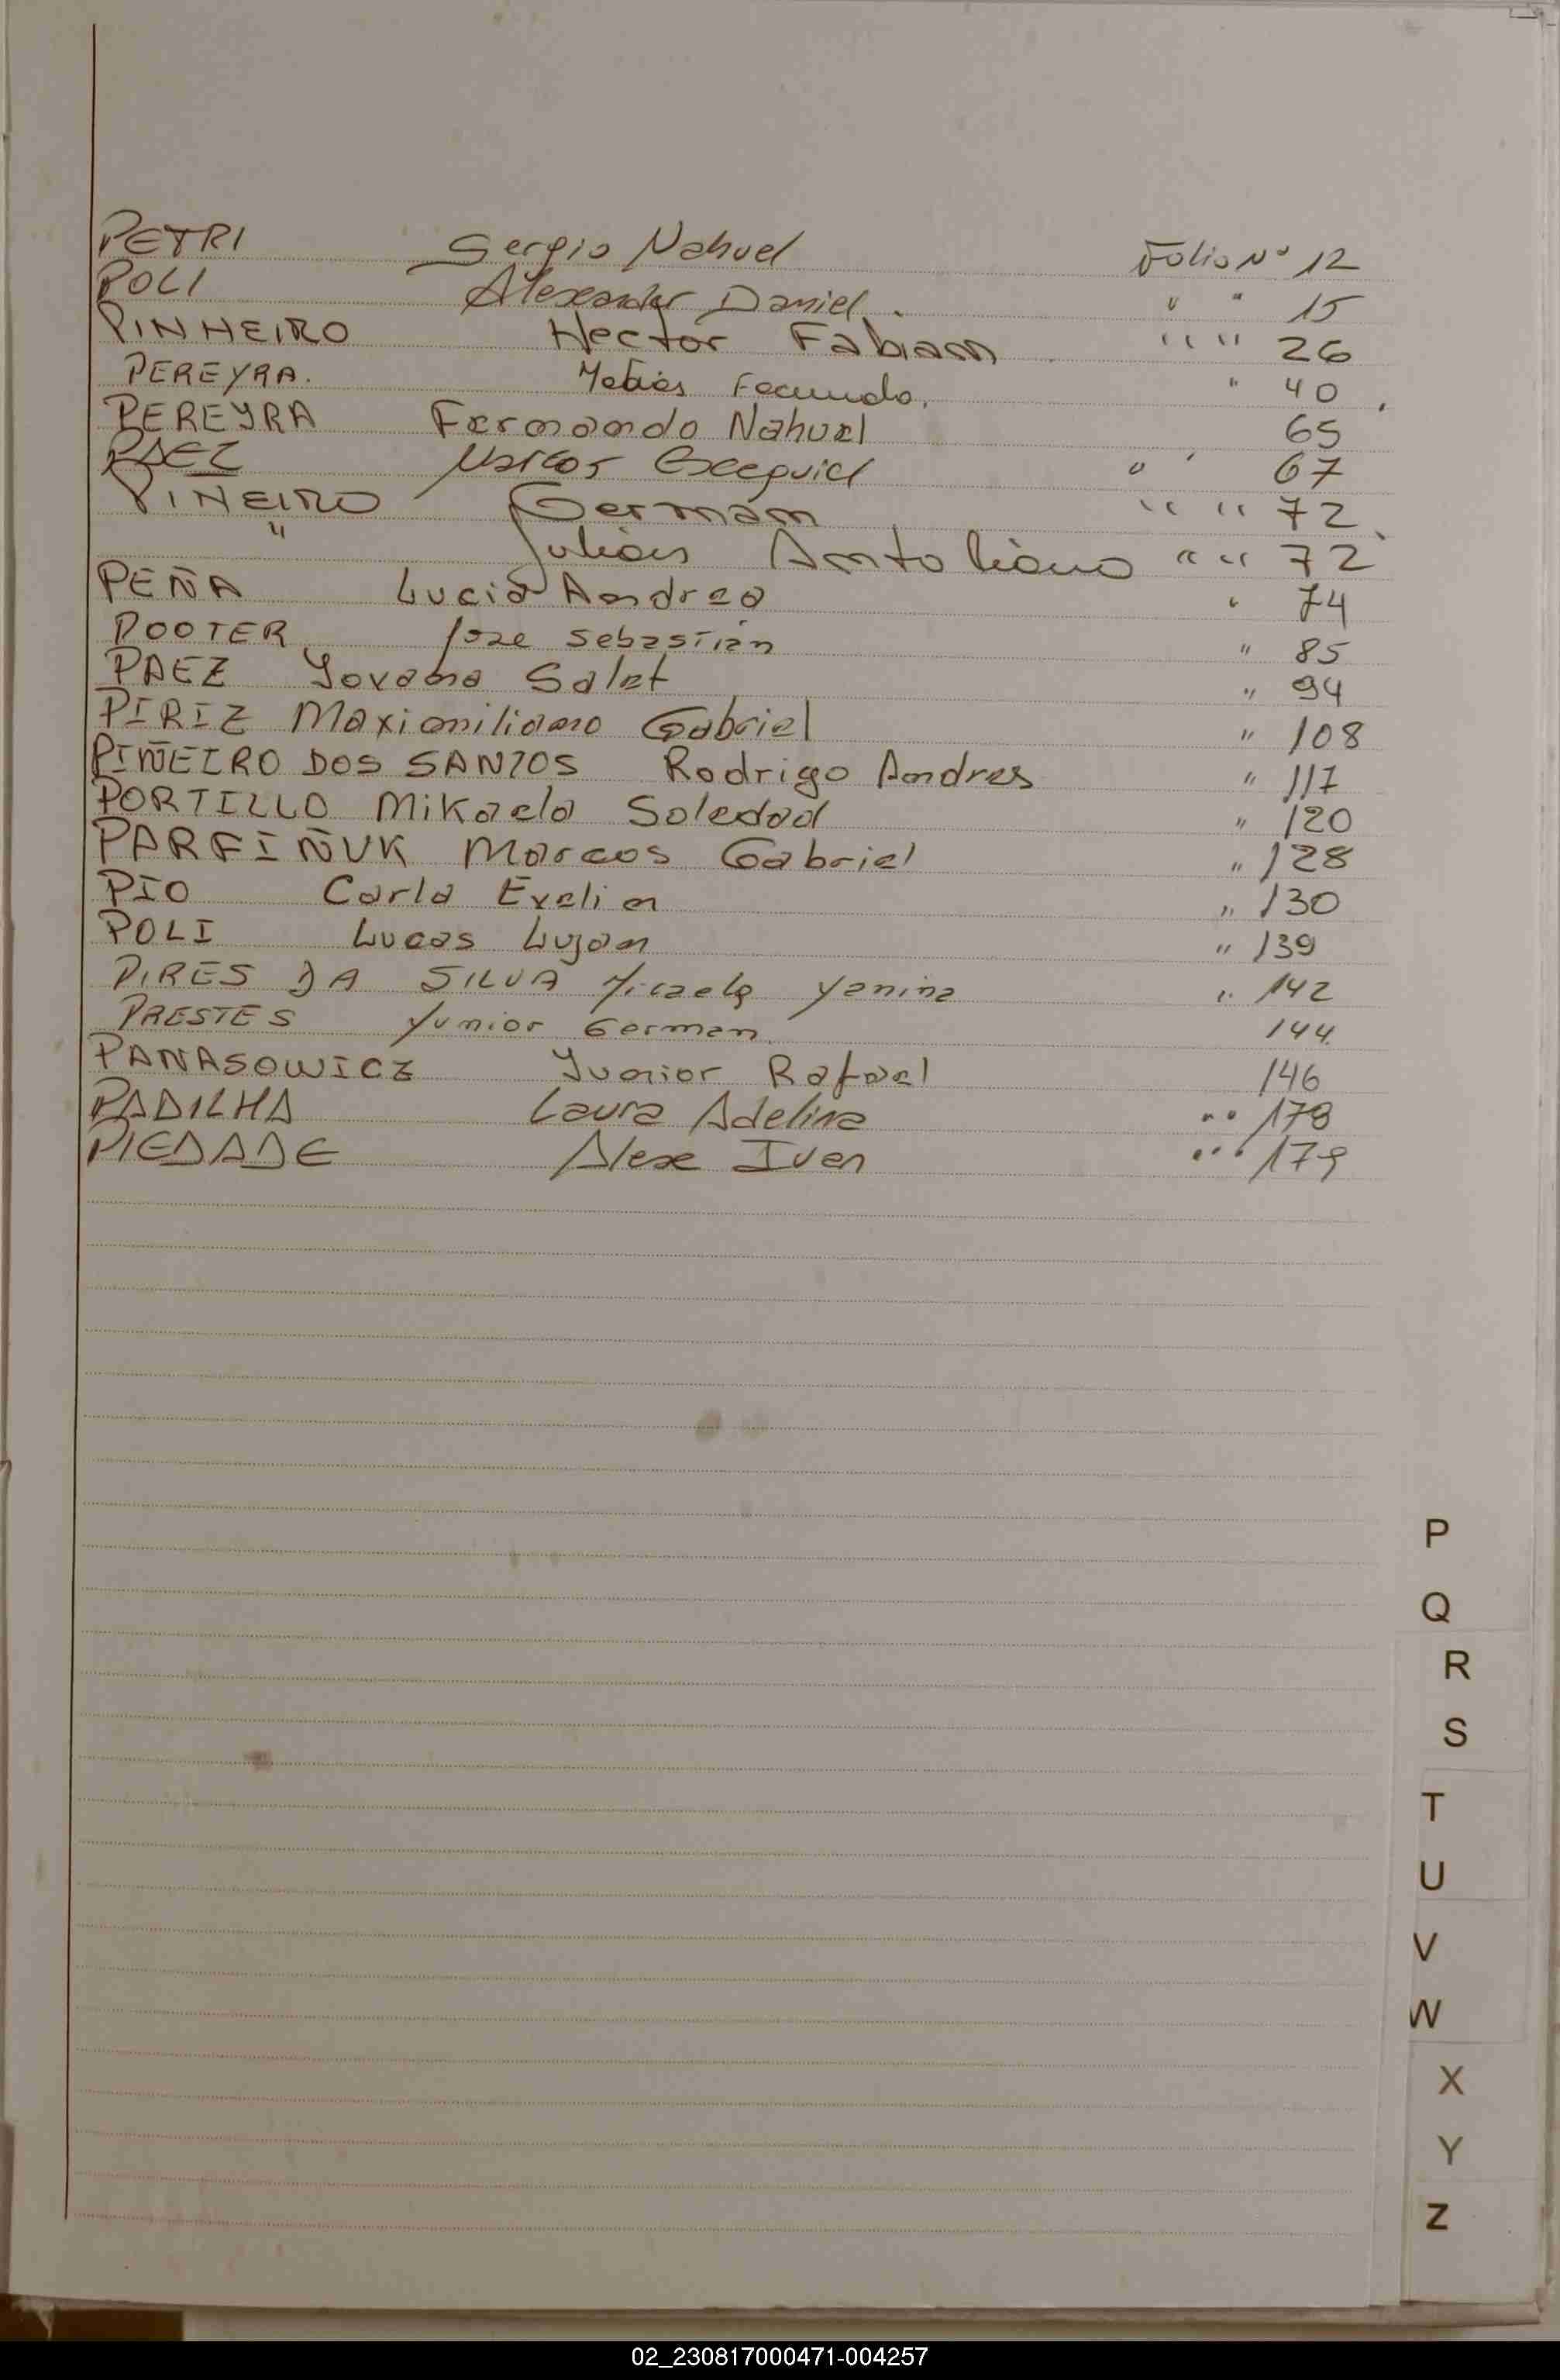 PETRI Sergio Nahuel Folio Nº 12
POLI Alexander Daniel. " " 15
PINHEIRO Hector Fabian " " 26
PEREYRA. Matias Facundo. " 40.
PEREYRA Fernando Nahuel 65
PAEZ Marcos Exequiel " " 67
PIÑEIRO German " " 72
" Julian Antoliano " " 72
PEÑA Lucia Andrea " 74
POOTER Jose Sebastián " 85
PAEZ Yovana Salet " 94
PIRIZ Maximiliano Gabriel " 108
PIÑEIRO DOS SANTOS Rodrigo Andres " 117
PORTILLO Mikaela Soledad " 120
PARFIÑUK Marcos Gabriel " 128
PIO Carla Evelin " 130
POLI Lucas Lujan " 139
PIRES DA SILVA Micaela Yanina " 142
PRESTES Yunior German. 144
PANASOWICZ Junior Rafael 146
PADILHA Laura Adelina " 178
PIEDADE Alexe Ivan " 179
P
Q
R
S
T
U
V
W
X
Y
Z
02_230817000471-004257